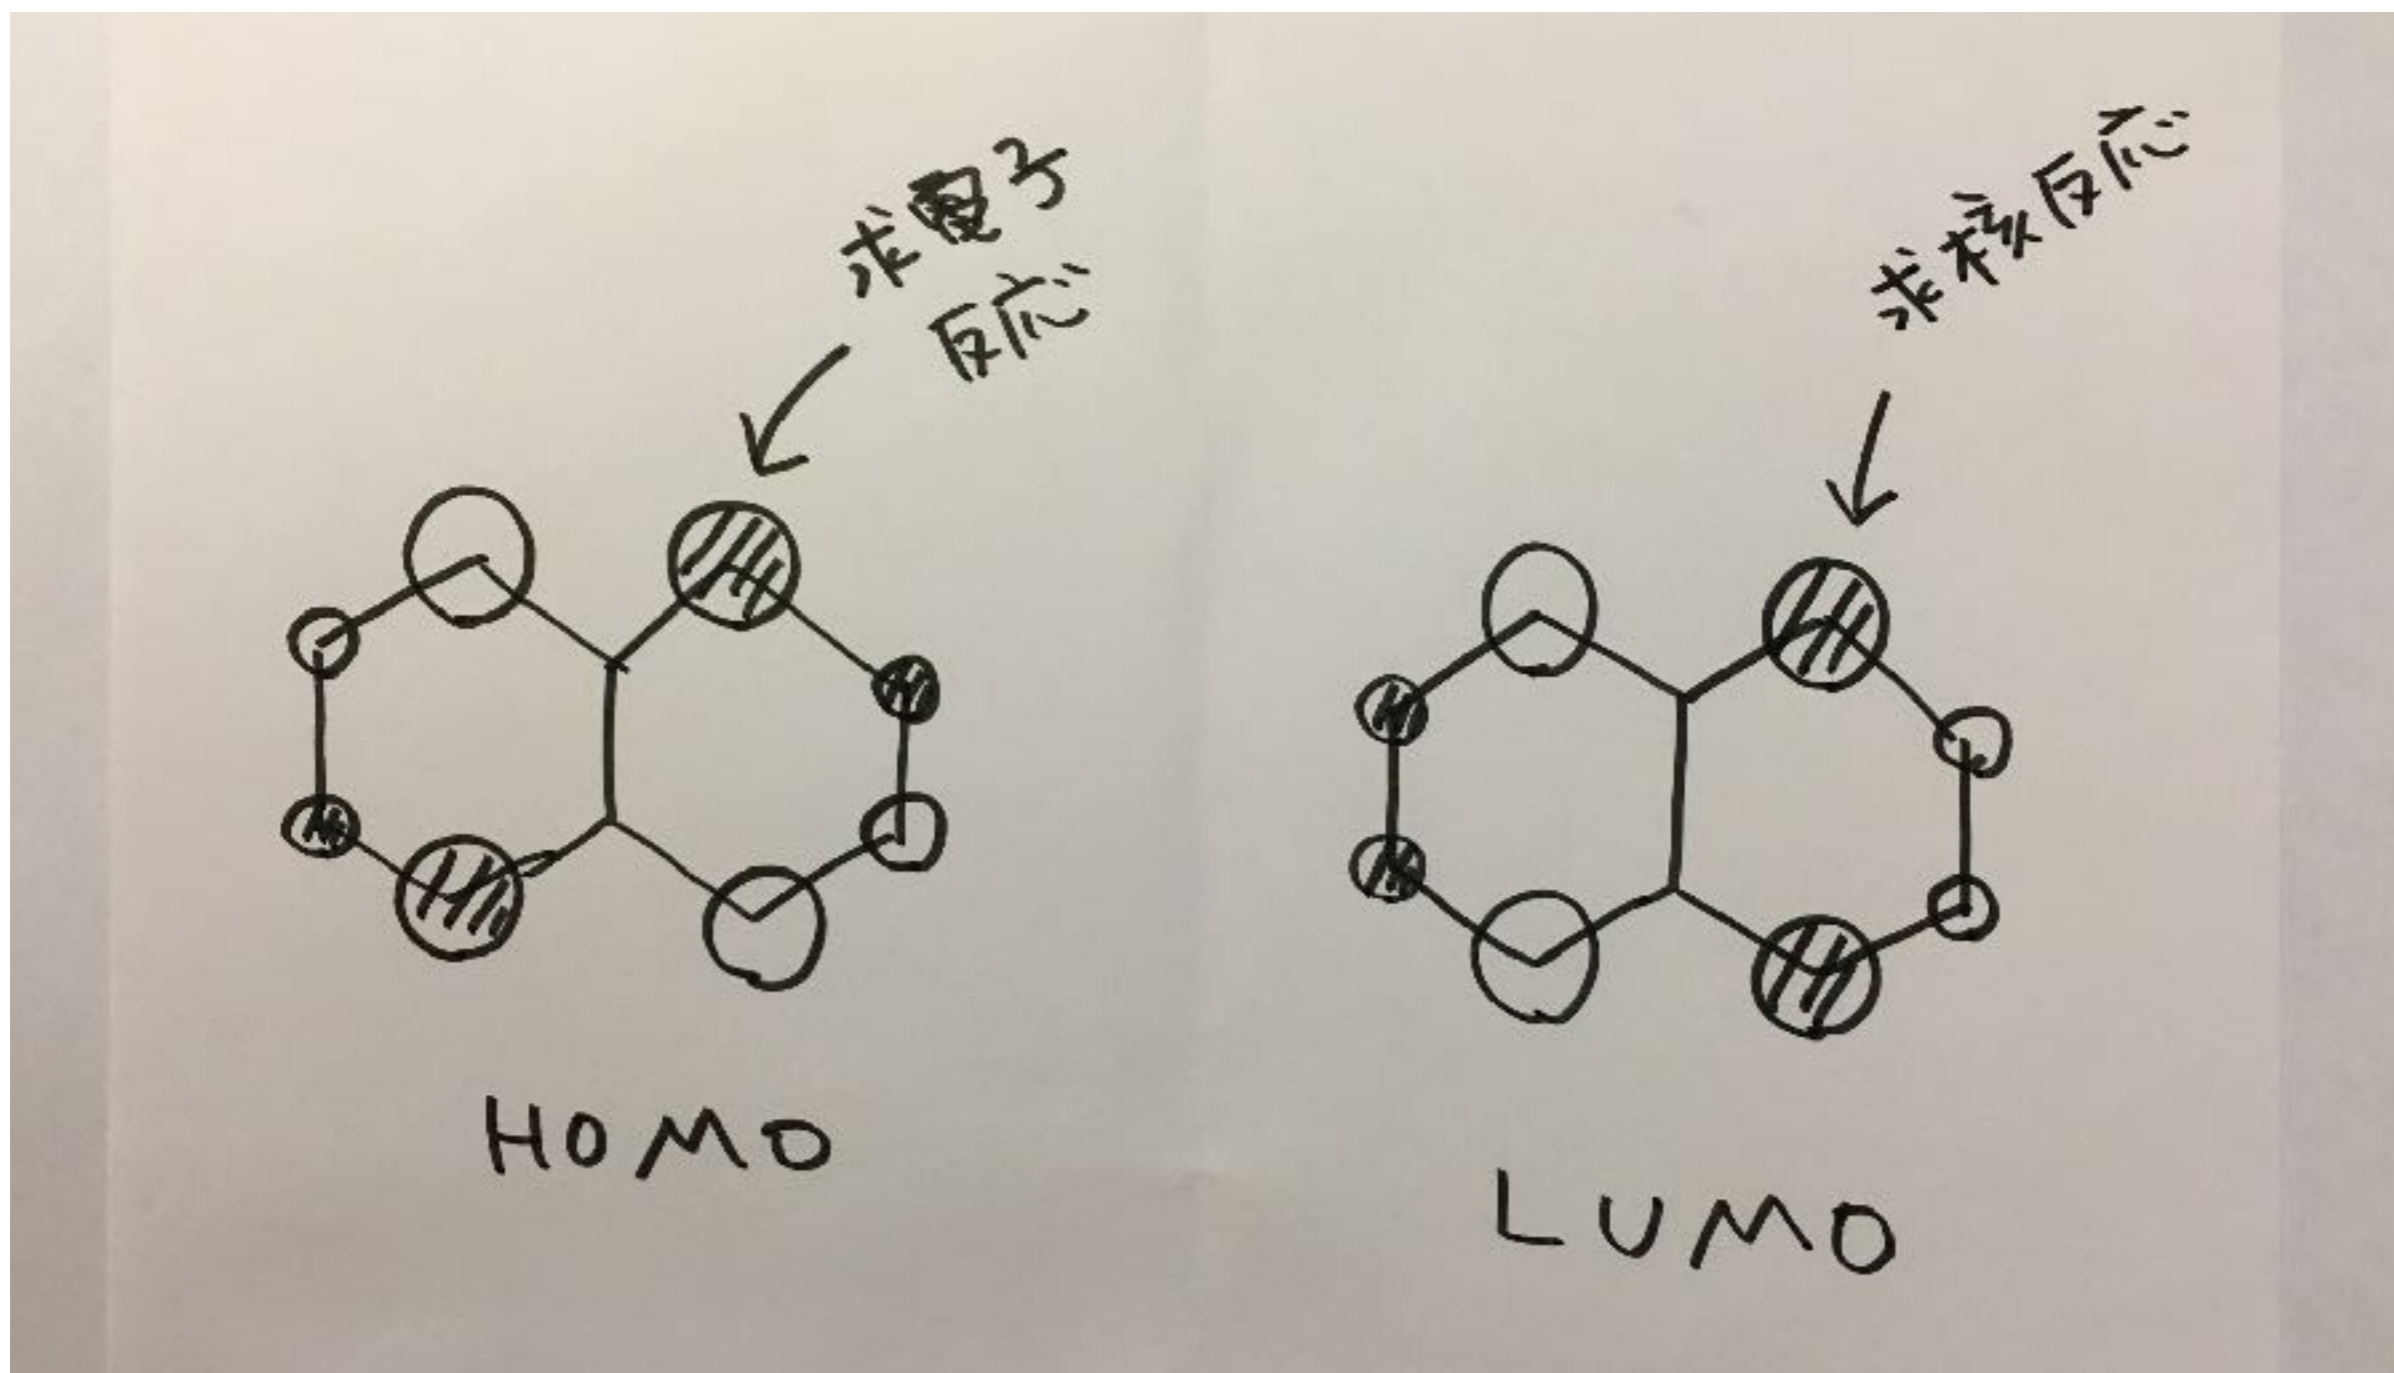 求電子
反応
求核反応
HOMO
LUMO